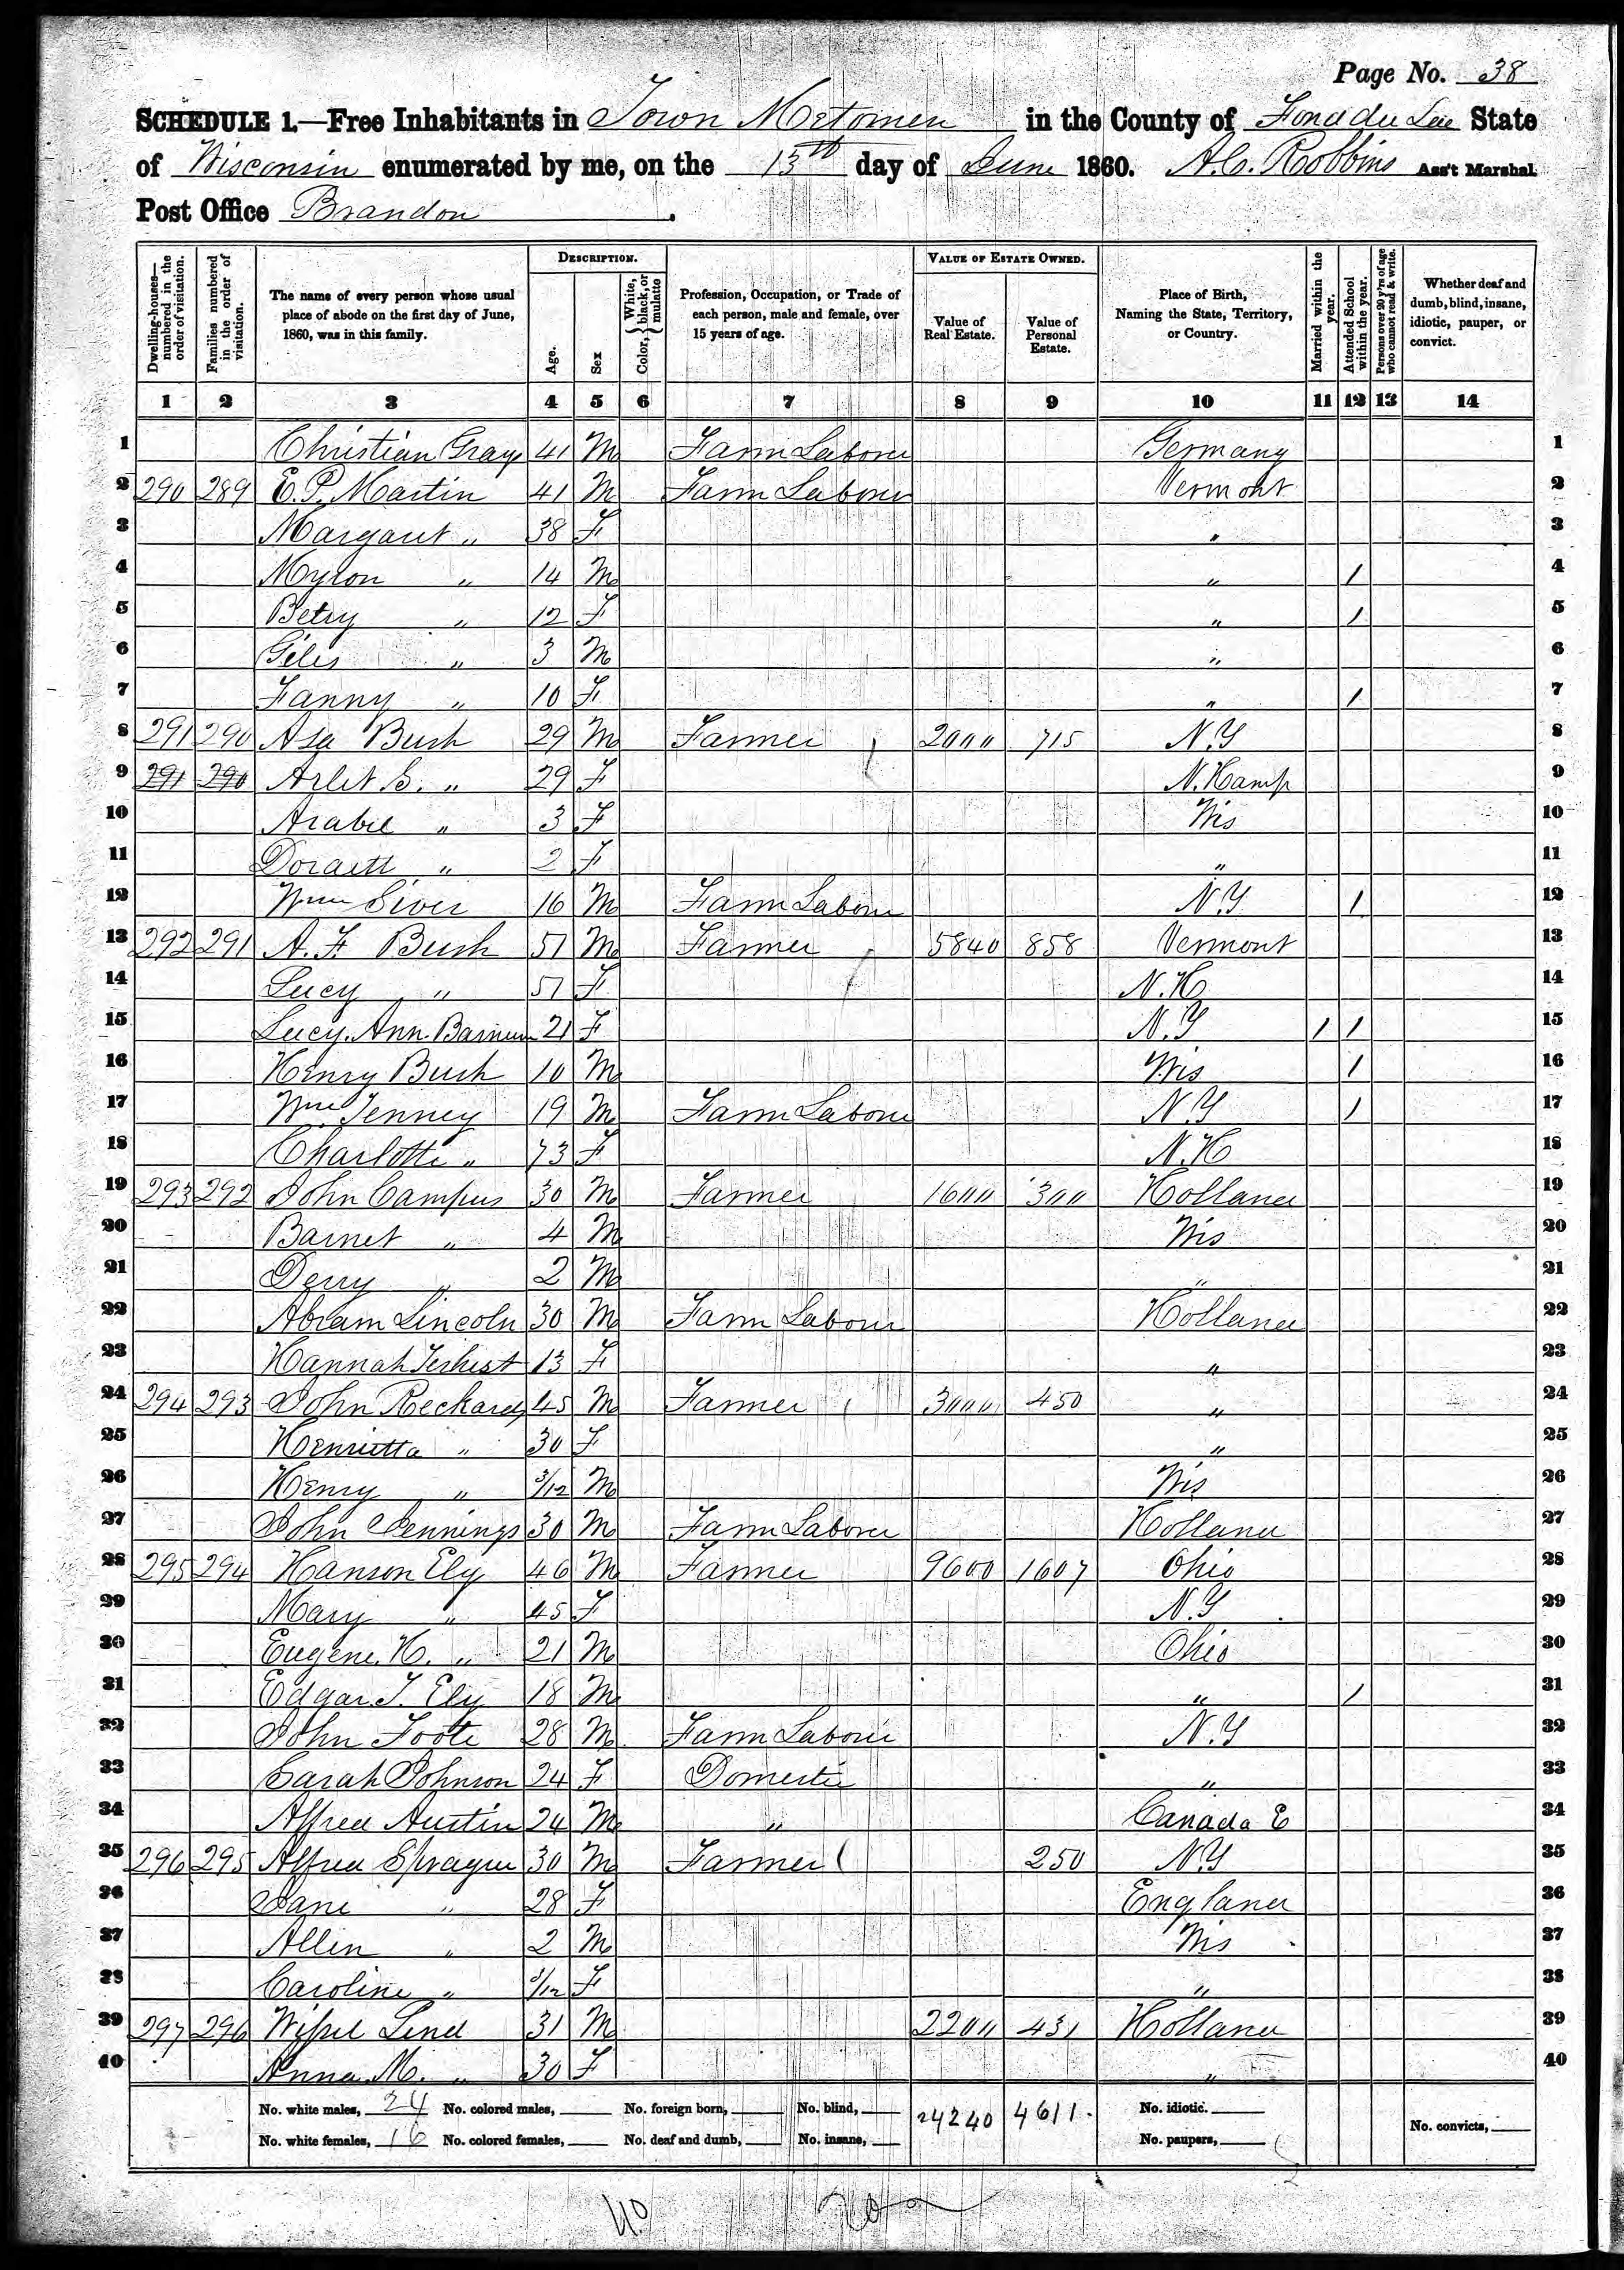 Page No. 38
SCHEDULE 1.—Free Inhabitants in Town Metomen in the County of Fond du Lac State
of Wisconsin enumerated by me, on the 13th day of June 1860. A.C. Robbins Ass't Marshal.
Post Office Brandon.
Dwelling-houses—numbered in the order of visitation. Families numbered in the order of visitation. The name of every person whose usual place of abode on the first day of June, 1860, was in this family. DESCRIPTION. Age. Sex Color, White, black, or mulatto Profession, Occupation, or Trade of each person, male and female, over 15 years of age. VALUE OF ESTATE OWNED. Value of Real Estate. Value of Personal Estate. Place of Birth, Naming the State, Territory, or Country. Married within the year. Attended School within the year. Persons over 20 y'rs of age who cannot read & write. Whether deaf and dumb, blind, insane, idiotic, pauper, or convict.
1 2 3 4 5 6 7 8 9 10 11 12 13 14
1 Christian Gray 41 M Farm Laborer Germany 1
2 290 289 E. P. Martin 41 M Farm Laborer Vermont 2
3 Margaret " 38 F " 3
4 Myron " 14 M " / 4
5 Betsy " 12 F " / 5
6 Giles " 3 M " 6
7 Fanny " 10 F " / 7
8 291 290 Asa Bush 29 M Farmer 2000 715 N.Y 8
9 291 290 Arlet S. " 29 F N. Hamp 9
10 Arabel " 3 F Wis 10
11 Doraett " 2 F " 11
12 Wm 16 M Farm Laborer N.Y / 12
13 292 291 A. F. Bush 51 M Farmer 5840 858 Vermont 13
14 Lucy " 51 F N.H 14
15 Lucy Ann Barnum 21 F N.Y / / 15
16 Henry Bush 10 M Wis / 16
17 Wm Tenney 19 M Farm Laborer N.Y / 17
18 Charlotte " 73 F N.H 18
19 293 292 John Campus 30 M Farmer 1600 300 Holland 19
20 Barnet " 4 M Wis 20
21 Derry " 2 M " 21
22 Abram Lincoln 30 M Farm Laborer Holland 22
23 Hannah 13 F " 23
24 294 293 John 45 M Farmer 3000 450 " 24
25 Henrietta " 30 F " 25
26 Henry " 3/12 M Wis 26
27 John Jennings 30 M Farm Laborer Holland 27
28 295 294 Hanson Ely 46 M Farmer 9600 1607 Ohio 28
29 Mary " 45 F N.Y 29
30 Eugene H. " 21 M Ohio 30
31 Edgar T. Ely 18 M " / 31
32 John Foote 28 M Farm Laborer N.Y 32
33 Sarah Johnson 24 F Domestic " 33
34 Alfred Austin 24 M " Canada E 34
35 296 295 Alfred Sprague 30 M Farmer 250 N.Y 35
36 Jane " 28 F England 36
37 Allen " 2 M Wis 37
38 Caroline " 3/12 F " 38
39 297 296 Lend 31 M 2200 431 Holland 39
40 Anna M. " 30 F " 40
No. white males, 24 No. colored males, No. foreign born, No. blind, 24240 4611 No. idiotic. No. convicts,
No. white females, 16 No. colored females, No. deaf and dumb, No. insane, No. paupers,
40